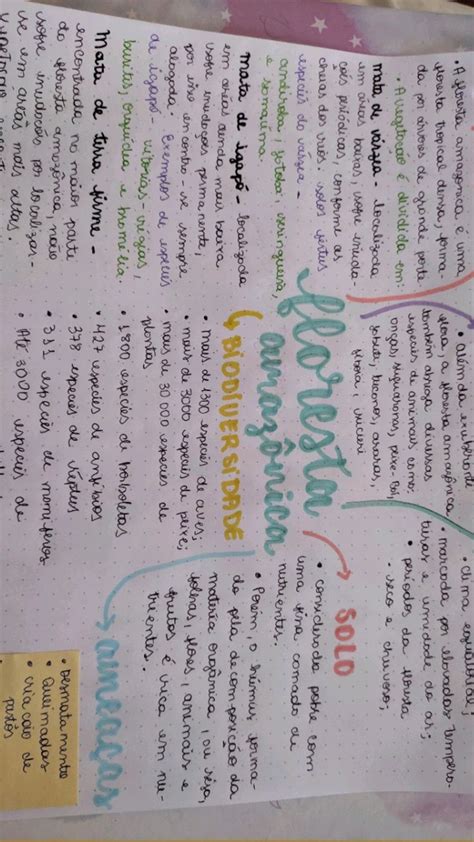 • A floresta amazônica é uma
floresta tropical densa, forma-
da por árvores de grande porte
• A vegetação é dividida em:
mata de várzea - localizada
em áreas baixas, sofre inunda-
ções periódicas, conforme as
cheias dos rios. solos férteis
espécies da várzea -
andiroba, jatobá, seringueira,
e samaúma.
mata de igapó - localizada
em áreas ainda mais baixa
sofre inundações permanente,
por isso encontra-se sempre
alagada. Exemplos de espécies
de igapó - vitórias-régias,
buritis, orquídea e bromélia.
Mata de terra firme -
encontrada na maior parte
da floresta amazônica, não
sofre inundações por localizar-
se em áreas mais altas.
floresta
amazônica
• além da exuberante
flora, a floresta amazônica
também abriga diversas
espécies de animais como;
onças, suçuaranas, peixe-boi,
jabuti, tucanos, araras,
BIODIVERSIDADE
• mais de 1300 espécies de aves;
• mais de 3000 espécies de peixe;
• mais de 30 000 espécies de
plantas
• 1800 espécies de borboletas
• 427 espécies de anfíbios
• 378 espécies de répteis
• 311 espécies de mamíferos
• Até 3000 espécies de
• clima equatorial;
• marcada por elevadas tempera-
turas e umidade do ar;
• períodos da floresta
- seco e chuvoso;
SOLO
• considerado pobre com
uma fina camada de
nutrientes.
• Porém, o húmus forma-
do pela decomposição da
matéria orgânica, ou seja,
folhas, flores, animais e
frutos é rica em nu-
trientes.
ameaças
• Desmatamento
• Queimadas
• criação de
pastos